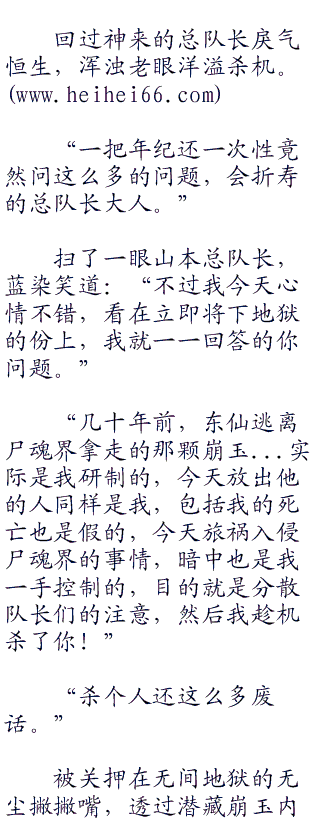 回过神来的总队长戾气
恒生，浑浊老眼洋溢杀机。
(www.heihei66.com)
“一把年纪还一次性竟
然问这么多的问题，会折寿
的总队长大人。”
扫了一眼山本总队长，
蓝染笑道：“不过我今天心
情不错，看在立即将下地狱
的份上，我就一一回答的你
问题。”
“几十年前，东仙逃离
尸魂界拿走的那颗崩玉...实
际是我研制的，今天放出他
的人同样是我，包括我的死
亡也是假的，今天旅祸入侵
尸魂界的事情，暗中也是我
一手控制的，目的就是分散
队长们的注意，然后我趁机
杀了你！”
“杀个人还这么多废
话。”
被关押在无间地狱的无
尘撇撇嘴，透过潜藏崩玉内